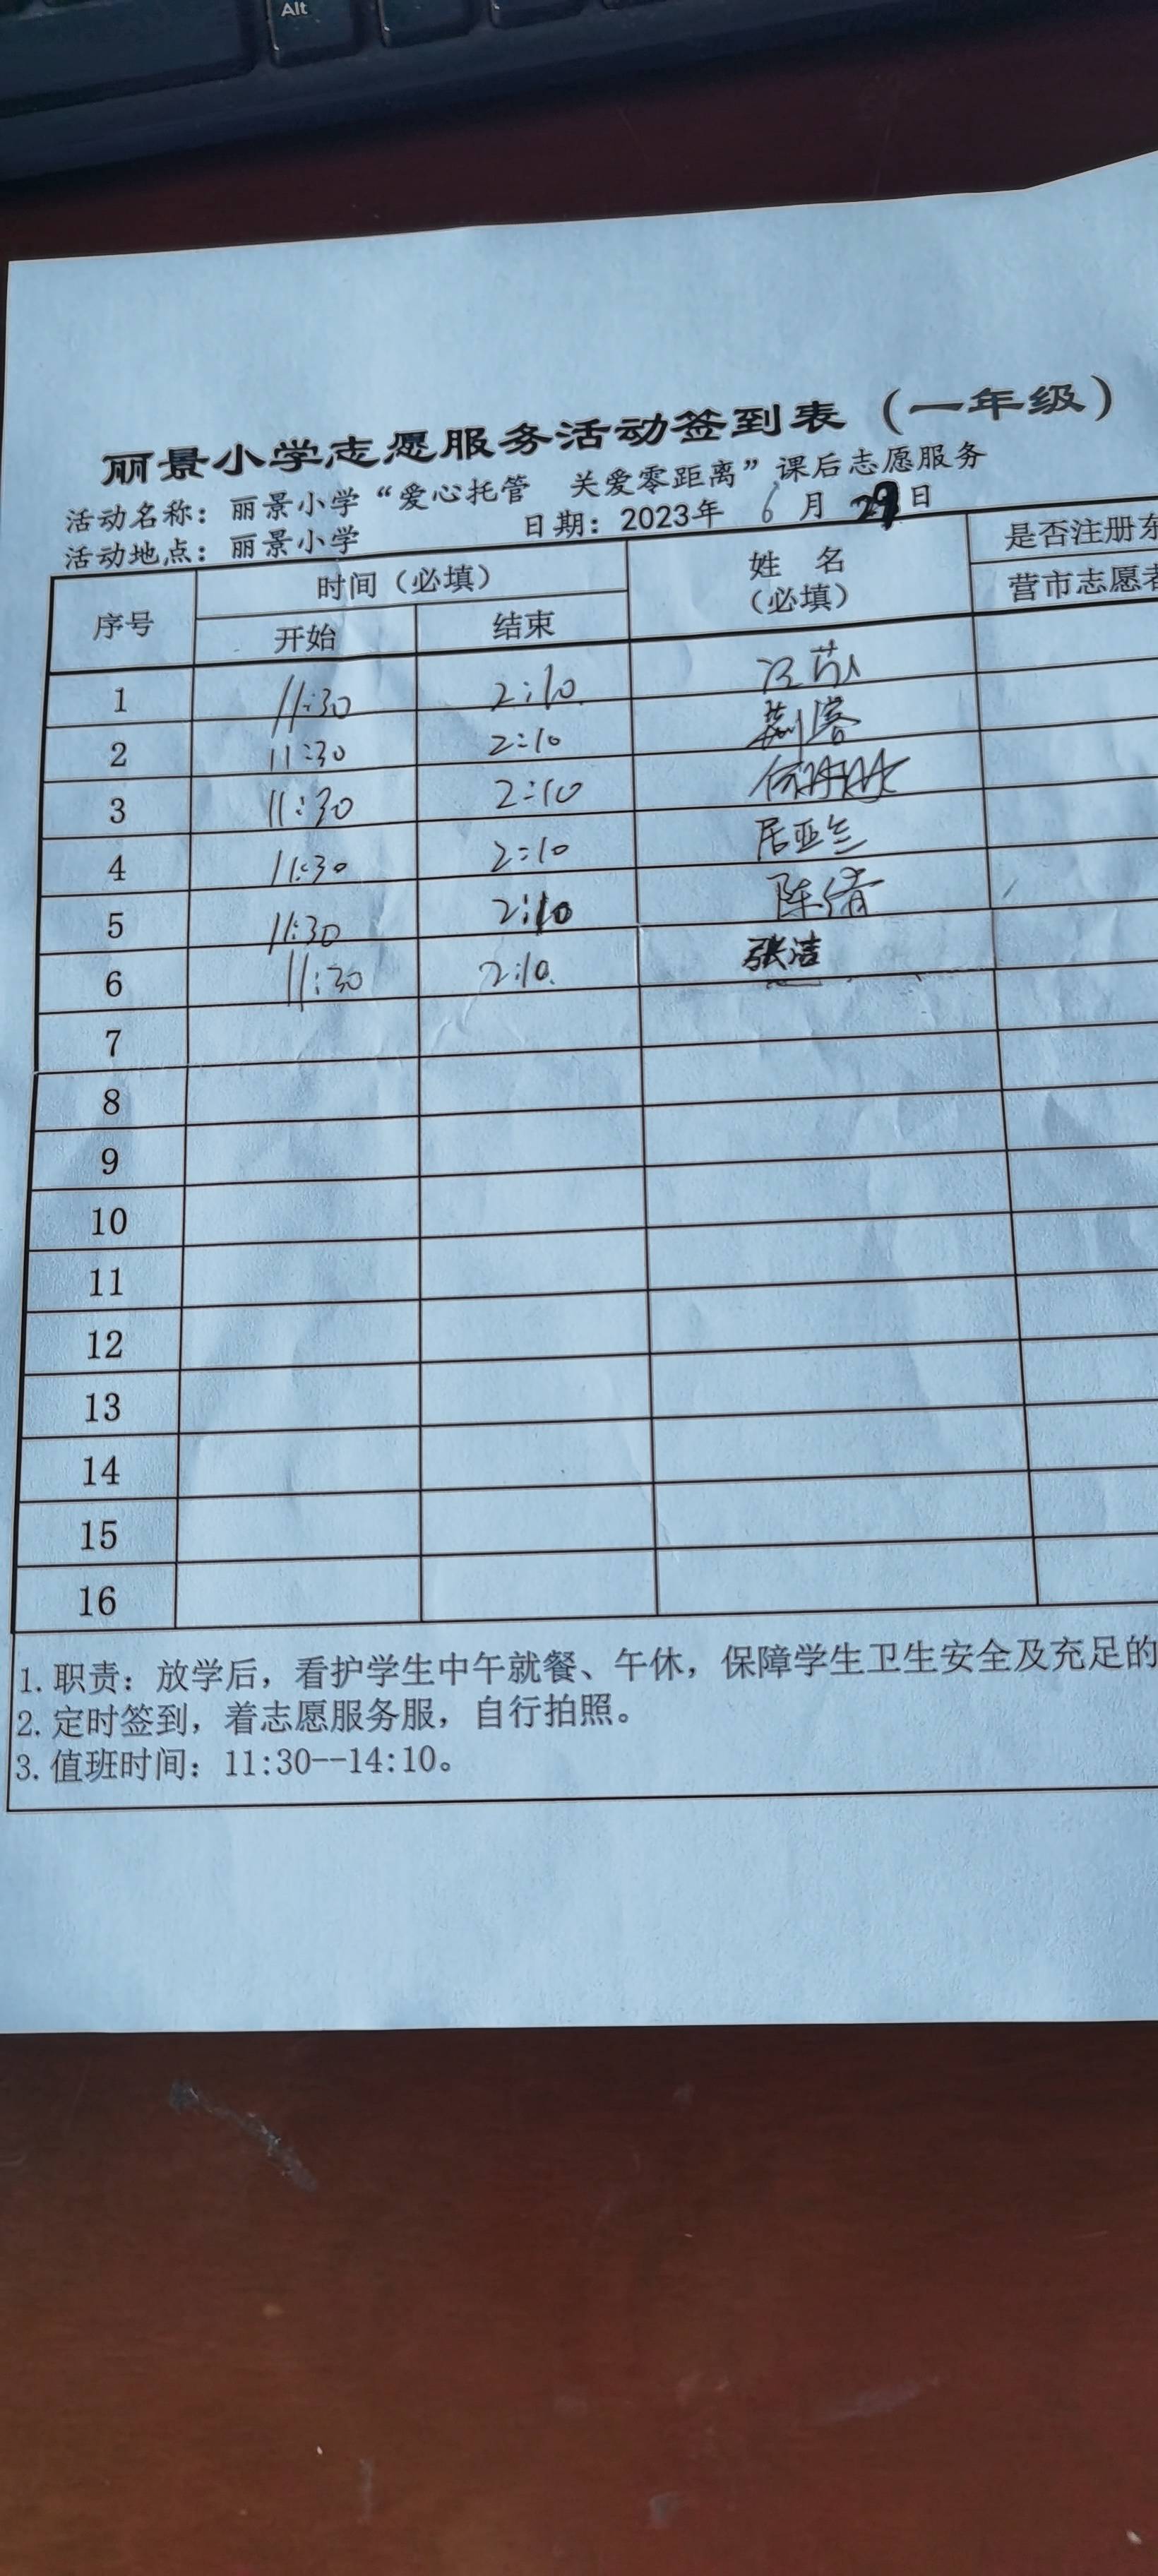 Alt
丽景小学志愿服务活动签到表（一年级）
活动名称：丽景小学“爱心托管 关爱零距离”课后志愿服务
活动地点：丽景小学 日期：2023年 6 月 日
序号 时间（必填） 姓 名 是否注册东
开始 结束 （必填） 营市志愿者
1 11:30 2:10
2 11:30 2:10
3 11:30 2:10
4 11:30 2:10 居亚兰
5 11:30 2:10 陈倩
6 11:30 2:10 张洁
7
8
9
10
11
12
13
14
15
16
1. 职责：放学后，看护学生中午就餐、午休，保障学生卫生安全及充足的
2. 定时签到，着志愿服务服，自行拍照。
3. 值班时间：11:30--14:10。